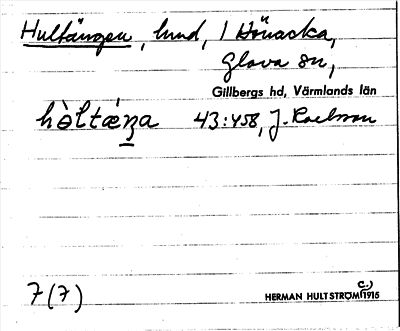 Hultängen, lund, 1 Hönacka,
Glava sn,
Gillbergs hd, Värmlands län
hòltǽŋa 43:458, J. Roelsson
7(7)
C.)
HERMAN HULTSTRÖM 1915